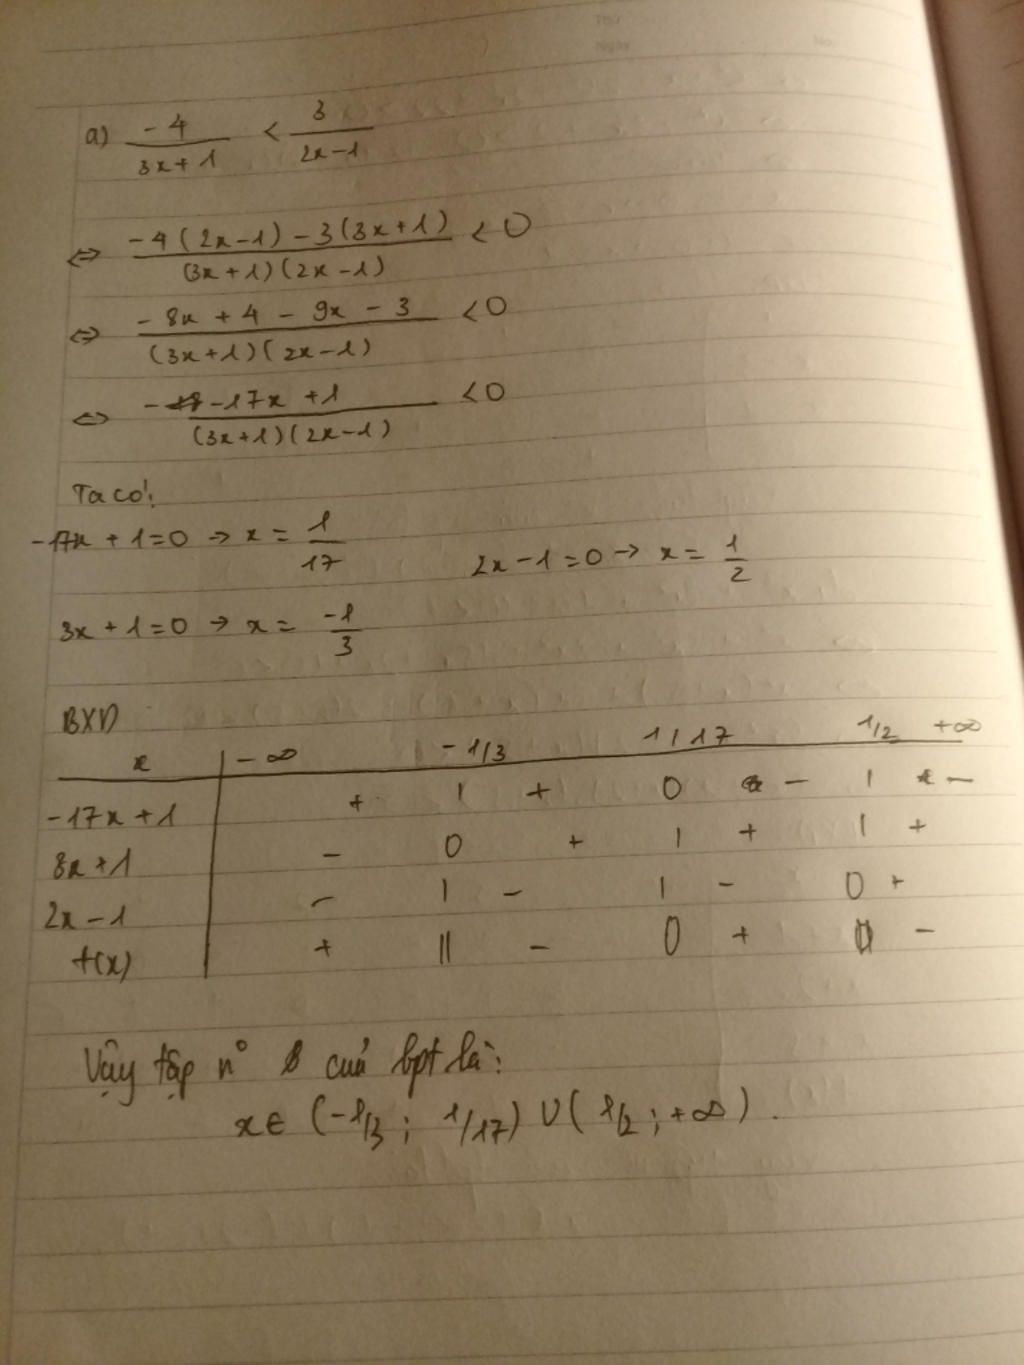 Thứ
Ngày No.
a) -4/(3x+1) < 3/(2x-1)
⇔ (-4(2x-1) - 3(3x+1))/((3x+1)(2x-1)) < 0
⇔ (-8x + 4 - 9x - 3)/((3x+1)(2x-1)) < 0
⇔ (-17x + 1)/((3x+1)(2x-1)) < 0
Ta có:
-17x + 1 = 0 → x = 1/17 2x - 1 = 0 → x = 1/2
3x + 1 = 0 → x = -1/3
BXD
x | -∞ -1/3 1/17 1/2 +∞
-17x + 1 | + | + 0 - | -
3x + 1 | - 0 + | + | +
2x - 1 | - | - | - 0 +
f(x) | + || - 0 + || -
Vậy tập n° của bpt là:
x ∈ (-1/3 ; 1/17) ∪ (1/2 ; +∞).